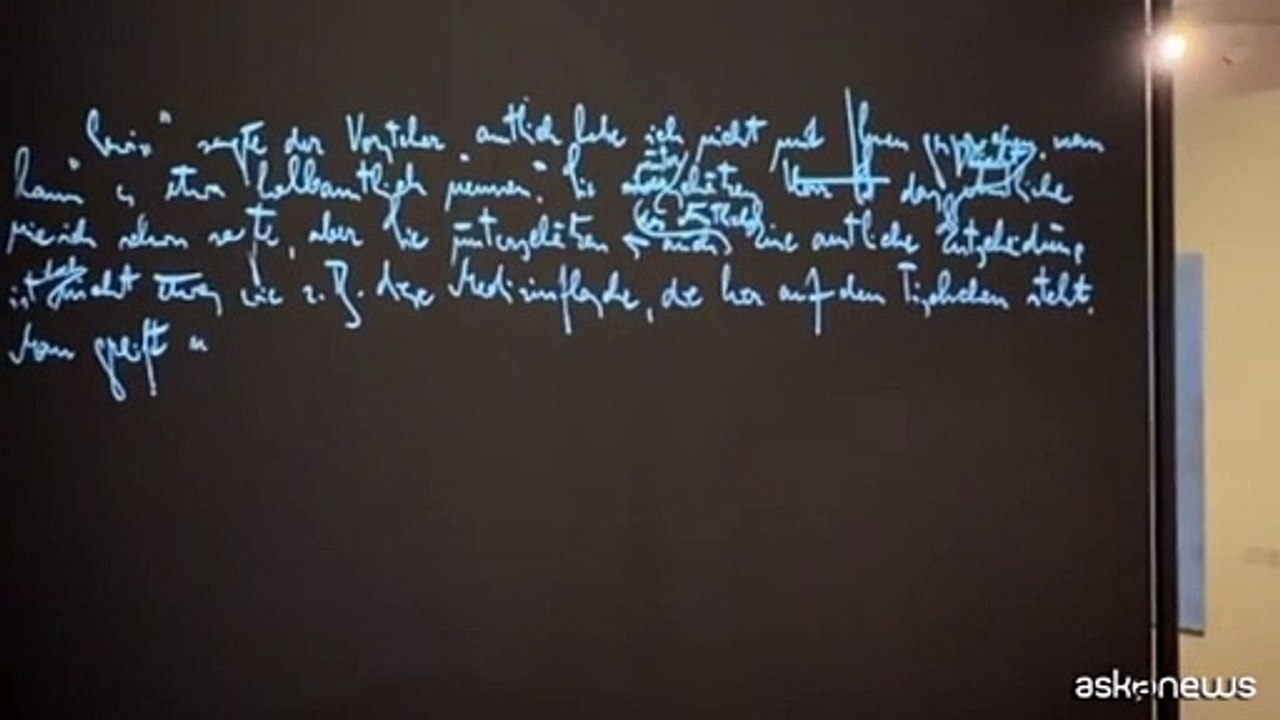 "Nein" sagte der Vorsteher "amtlich habe ich nicht mit Ihnen gesprochen, man
kann es etwa "halbamtlich" nennen. Sie unterschätzen das Unamtliche
wie ich schon sagte, aber Sie unterschätzen auch Eine amtliche Entscheidung
ist doch nicht etwas wie z. B. diese Medizinflasche, die hier auf dem Tischchen steht.
Man greift
askanews